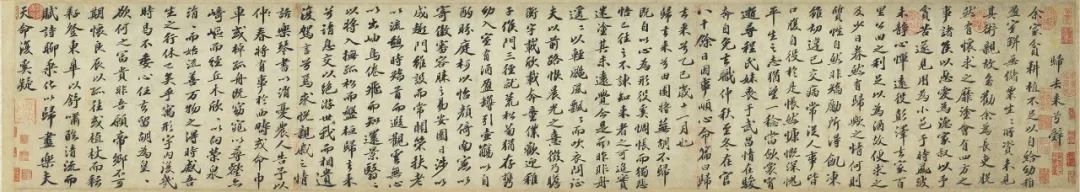 歸去来兮辭
余家貧耕植不足以自給幼稚
盈室缾無儲粟生生所資未見
其術親故多勸余為長吏脫
然有懷求之靡塗會有四方之
事諸侯以惠愛為德家叔以余
貧苦遂見用為小邑于時風波
未静心憚遠役彭澤去家百
里公田之利足以為酒故便求之
及少日眷然有歸歟之情何則
質性自然非矯勵所得飢凍
雖切違己交病嘗從人事皆
口腹自役於是悵然慷慨深愧
平生之志猶望一稔當斂裳宵
逝尋程氏妹喪于武昌情在駿
奔自免去職仲秋至冬在官
八十餘日因事順心命篇曰歸
去来兮乙巳歲十一月也
歸去来兮田園将蕪胡不歸
既自以心為形役奚惆悵而獨悲
悟已往之不諫知来者之可追寔
迷塗其未遠覺今是而昨非舟
遥遥以輕颺風飄飄而吹衣問征
夫以前路恨晨光之熹微乃瞻
衡宇載欣載奔僮僕歡迎稚
子候門三逕就荒松菊猶存攜
幼入室有酒盈罇引壺觴以自
酌眄庭柯以怡顔倚南窗以
寄傲審容膝之易安園日涉以
成趣門雖設而常關策扶老
以流憩時矯首而遐觀雲無心
以出岫鳥倦飛而知還景翳翳
以将入撫孤松而盤桓歸去来
兮請息交以絶游世與我而相遺
復駕言兮焉求悅親戚之情
話樂琴書以消憂農人告予以
仲春将有事於西疇或命巾
車或棹孤舟既窈窕以尋壑亦
崎嶇而經丘木欣欣以向榮泉
涓涓而始流善萬物之得時感吾
生之行休已矣乎寓形宇内復幾
時曷不委心任去留胡為乎遑遑
欲何之富貴非吾願帝鄉不可
期懷良辰以孤往或植杖而耘
耔登東皐以舒嘯臨清流而
賦詩聊乘化以歸盡樂夫
天命復奚疑